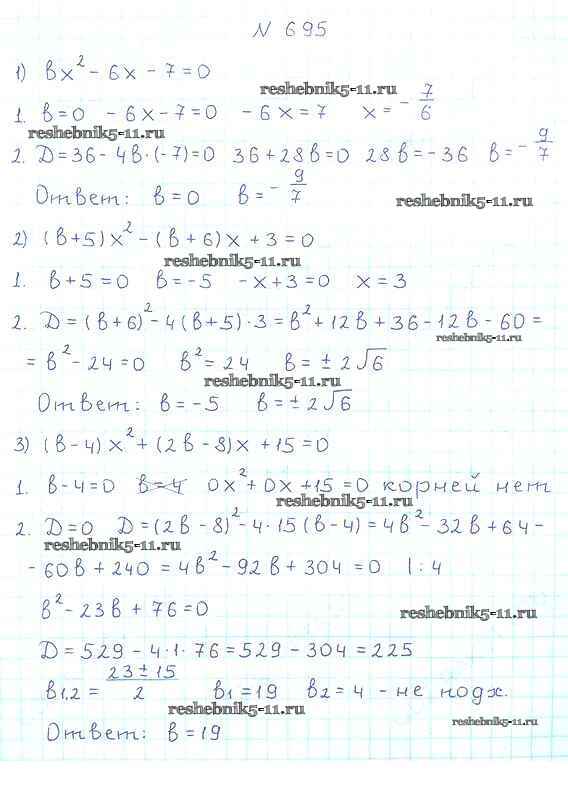 N 695
1) вx² - 6x - 7 = 0
reshebnik5-11.ru
1. в=0 - 6x - 7 = 0 - 6x = 7 x = - 7/6
reshebnik5-11.ru
2. D = 36 - 4в·(-7) = 0 36 + 28в = 0 28в = -36 в = - 9/7
Ответ: в = 0 в = - 9/7
reshebnik5-11.ru
2) (в+5)x² - (в+6)x + 3 = 0
reshebnik5-11.ru
1. в+5 = 0 в = -5 -x+3 = 0 x = 3
2. D = (в+6)² - 4(в+5)·3 = в² + 12в + 36 - 12в - 60 =
reshebnik5-11.ru
= в² - 24 = 0 в² = 24 в = ± 2√6
reshebnik5-11.ru
Ответ: в = -5 в = ± 2√6
3) (в-4)x² + (2в-8)x + 15 = 0
1. в-4=0 в=4 0x² + 0x + 15 = 0 корней нет
reshebnik5-11.ru
2. D=0 D = (2в-8)² - 4·15(в-4) = 4в² - 32в + 64 -
reshebnik5-11.ru
- 60в + 240 = 4в² - 92в + 304 = 0 |:4
в² - 23в + 76 = 0
reshebnik5-11.ru
D = 529 - 4·1·76 = 529 - 304 = 225
в1,2 = 23±15/2 в1 = 19 в2 = 4 - не подх.
reshebnik5-11.ru
reshebnik5-11.ru
Ответ: в = 19